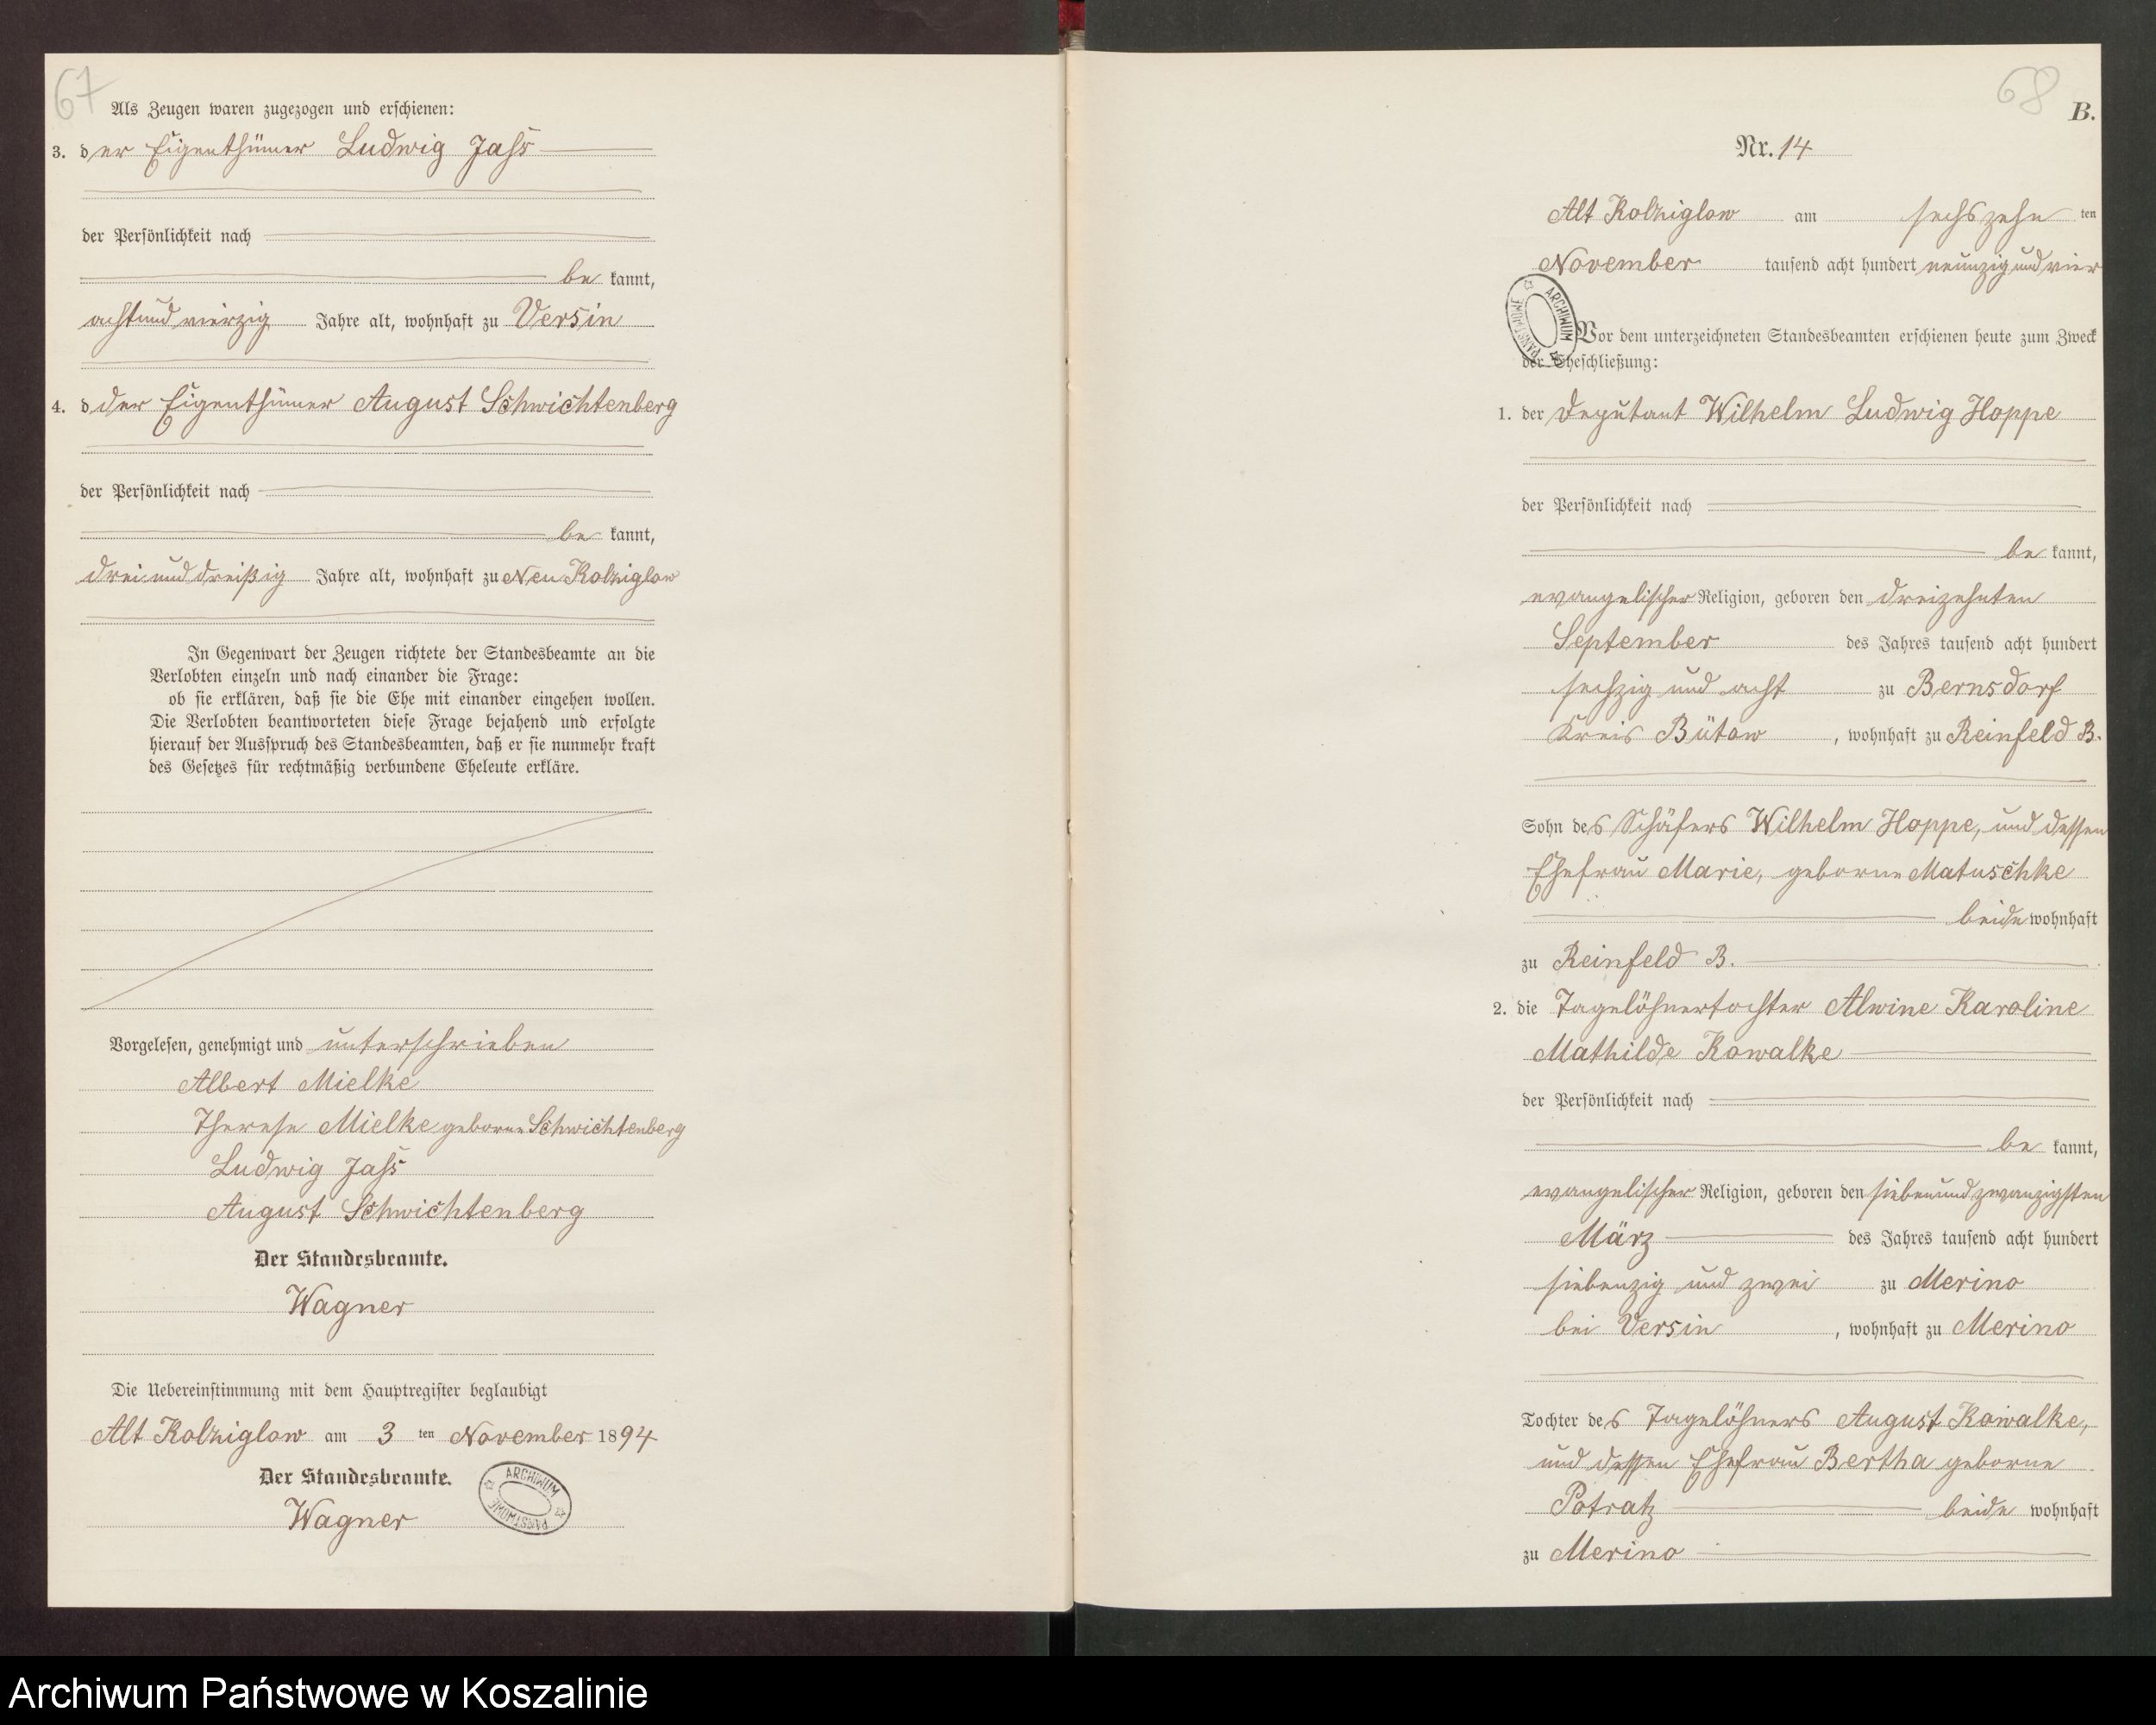 67
Als Zeugen waren zugezogen und erschienen:
3. der Eigenthümer Ludwig Jass
der Persönlichkeit nach
be kannt,
achtundvierzig Jahre alt, wohnhaft zu Versin
4. d der Eigenthümer August Schwichtenberg
der Persönlichkeit nach
be kannt,
dreiunddreißig Jahre alt, wohnhaft zu Neu Kolziglow
In Gegenwart der Zeugen richtete der Standesbeamte an die
Verlobten einzeln und nach einander die Frage:
ob sie erklären, daß sie die Ehe mit einander eingehen wollen.
Die Verlobten beantworteten diese Frage bejahend und erfolgte
hierauf der Ausspruch des Standesbeamten, daß er sie nunmehr kraft
des Gesetzes für rechtmäßig verbundene Eheleute erkläre.
Vorgelesen, genehmigt und unterschrieben
Albert Mielke
Therese Mielke geborne Schwichtenberg
Ludwig Jass
August Schwichtenberg
Der Standesbeamte.
Wagner
Die Uebereinstimmung mit dem Hauptregister beglaubigt
Alt Kolziglow am 3 ten November 1894
Der Standesbeamte.
Wagner
ARCHIWUM PAŃSTWOWE
68
B.
Nr. 14
Alt Kolziglow am sechszehn ten
November tausend acht hundert neunzig und vier
ARCHIWUM PAŃSTWOWE
Vor dem unterzeichneten Standesbeamten erschienen heute zum Zweck
der Eheschließung:
1. der Deputant Wilhelm Ludwig Hoppe
der Persönlichkeit nach
be kannt,
evangelischer Religion, geboren den dreizehnten
September des Jahres tausend acht hundert
sechzig und acht zu Bernsdorf
Kreis Bütow, wohnhaft zu Reinfeld B.
Sohn des Schäfers Wilhelm Hoppe, und dessen
Ehefrau Marie, geborne Matuschke
beide wohnhaft
zu Reinfeld B.
2. die Tagelöhnertochter Alwine Karoline
Mathilde Kowalke
der Persönlichkeit nach
be kannt,
evangelischer Religion, geboren den siebenundzwanzigsten
März des Jahres tausend acht hundert
siebenzig und zwei zu Merino
bei Versin, wohnhaft zu Merino
Tochter des Tagelöhners August Kowalke,
und dessen Ehefrau Bertha geborne
Potratz beide wohnhaft
zu Merino
Archiwum Państwowe w Koszalinie